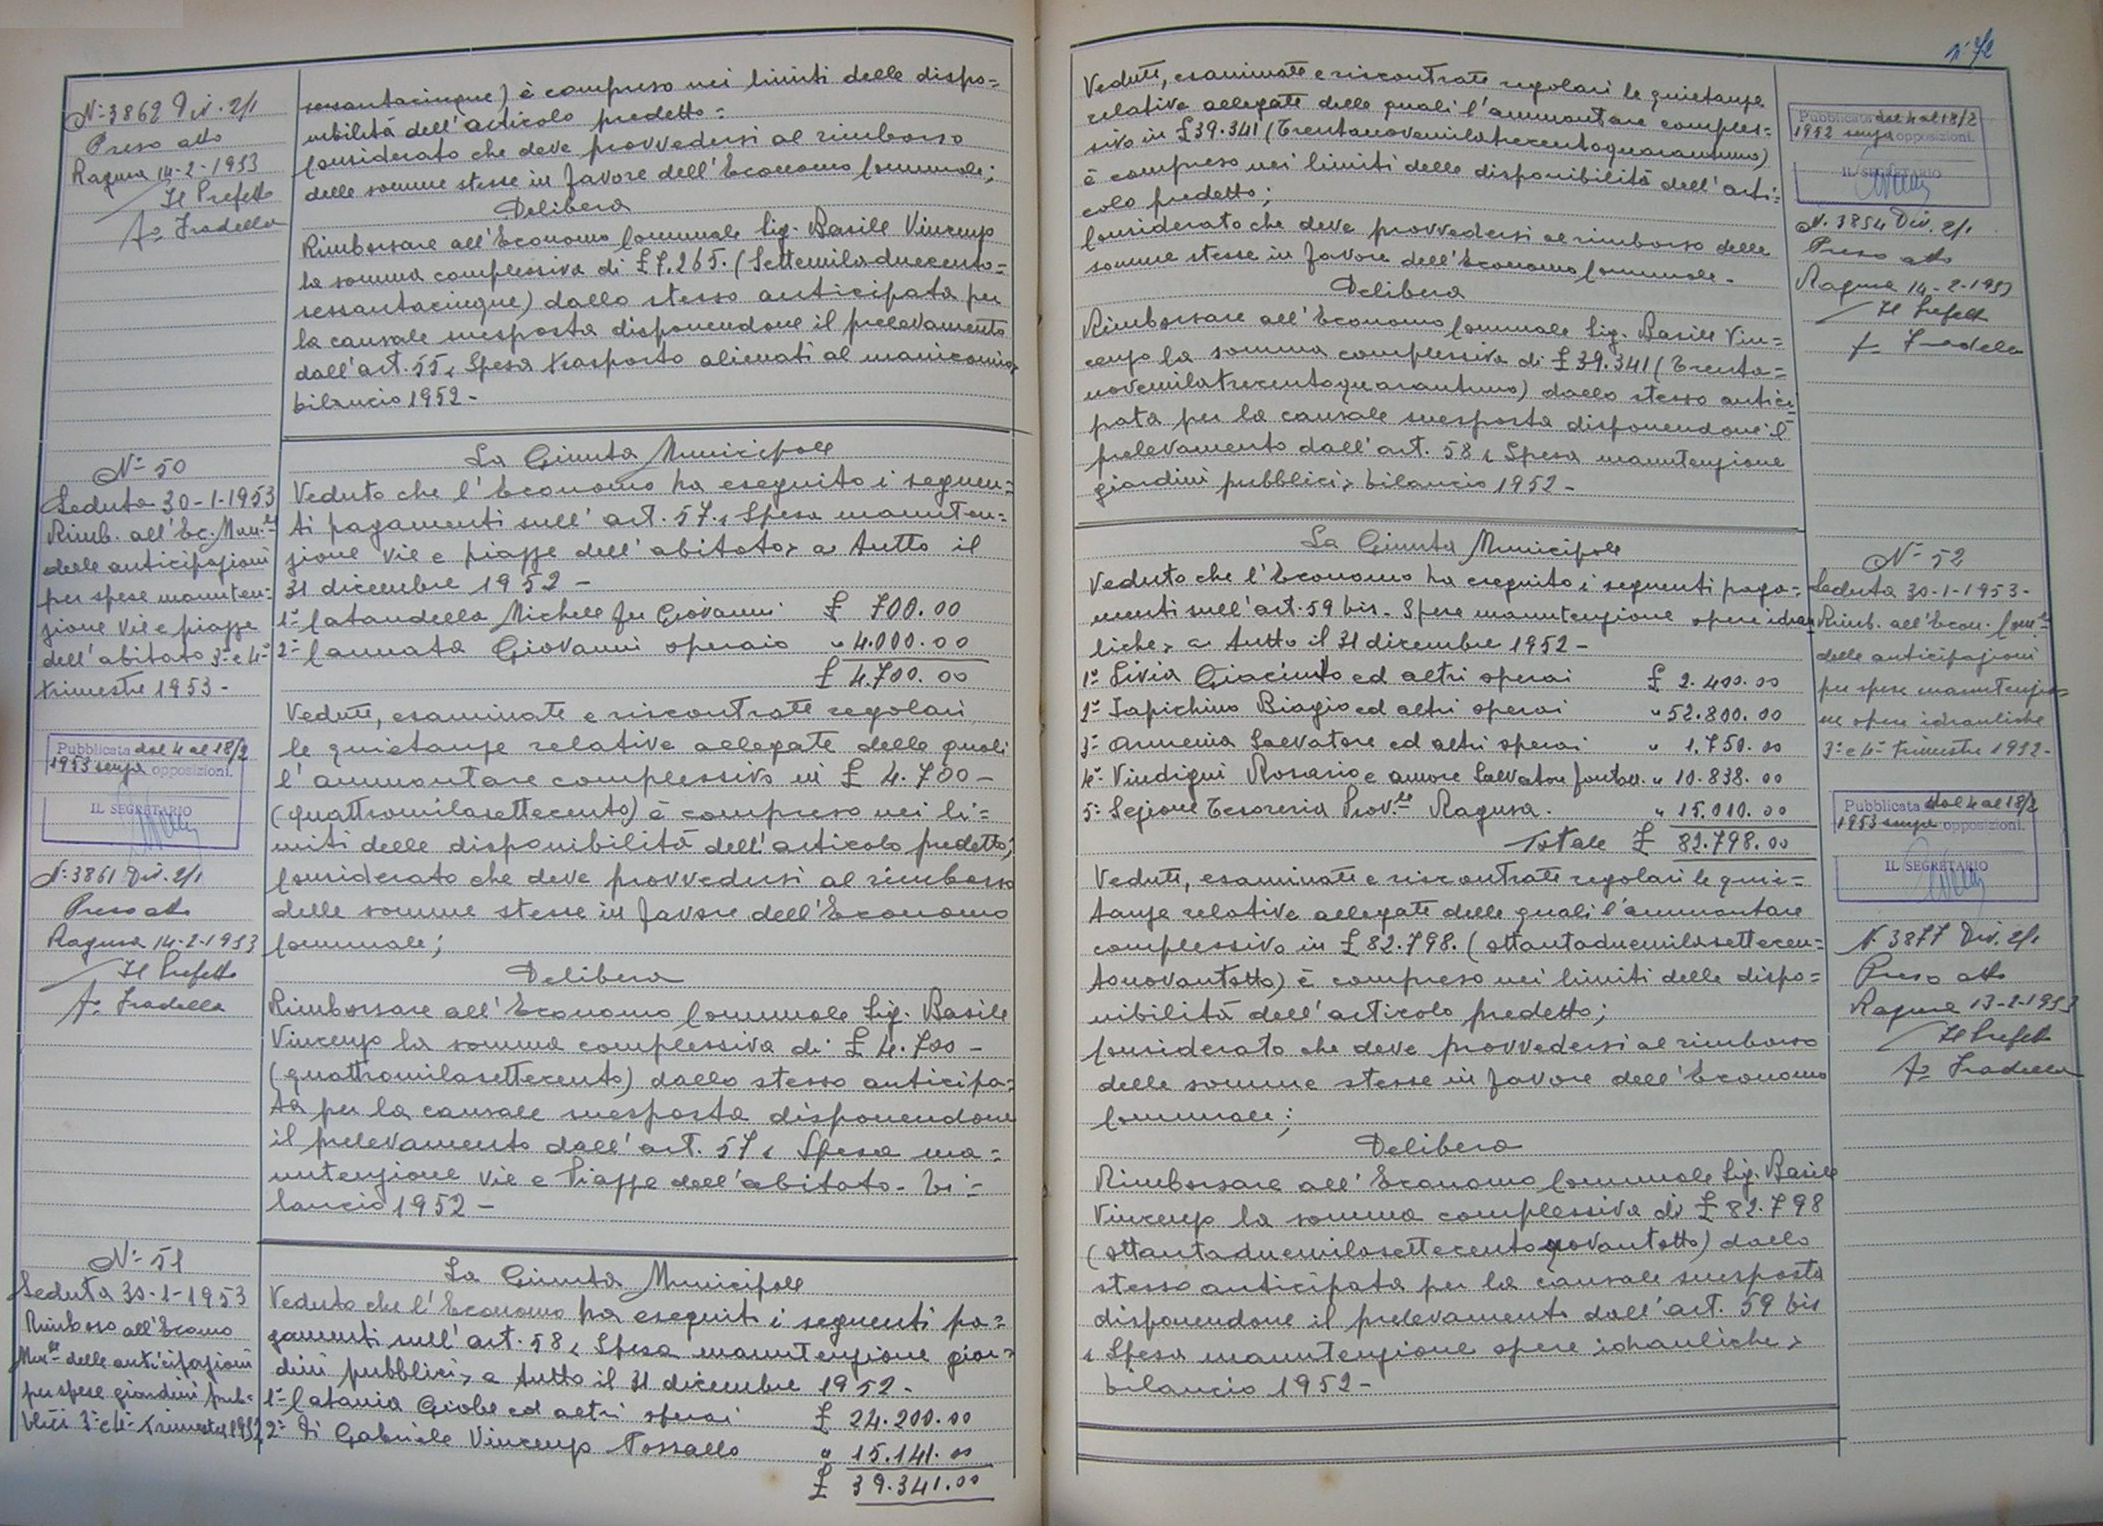 N. 3862 Div. 2/1
Preso atto
Ragusa 14-2-1953
Il Prefetto
Fto Fradella
sessantacinque) è compreso nei limiti delle dispo=
nibilità dell'articolo predetto:
Considerato che deve provvedersi al rimborso
delle somme stesse in favore dell'Economo Comunale;
Delibera
Rimborsare all'Economo Comunale Sig. Basile Vincenzo
la somma complessiva di £ 7.265. (Settemiladuecento=
sessantacinque) dallo stesso anticipata per
la causale suesposta disponendone il prelevamento
dall'art. 55 "Spesa trasporto alienati al manicomio"
bilancio 1952 -
N° 50
Seduta 30-1-1953
Rimb. all'Ec. Mun.le
delle anticipazioni
per spese manuten:
zione vie e piazze
dell'abitato 3° e 4°
trimestre 1953 -
Pubblicata dal 4 al 18/2
1953 senza opposizioni.
IL SEGRETARIO
N. 3861 Div. 2/1
Preso atto
Ragusa 14-2-1953
Il Prefetto
Fto Fradella
La Giunta Municipale
Veduto che l'Economo ha eseguito i seguen=
ti pagamenti sull'art. 57 "Spesa manuten=
zione vie e piazze dell'abitato" a tutto il
31 dicembre 1952 -
1° Catandella Michele fu Giovanni £ 700.00
2° Cannata Giovanni operaio " 4.000.00
£ 4.700.00
Vedute, esaminate e riscontrate regolari
le quietanze relative allegate delle quali
l'ammontare complessivo in £ 4.700 -
(quattromilasettecento) è compreso nei li=
miti delle disponibilità dell'articolo predetto;
Considerato che deve provvedersi al rimborso
delle somme stesse in favore dell'Economo
Comunale;
Delibera
Rimborsare all'Economo Comunale Sig. Basile
Vincenzo la somma complessiva di £ 4.700 -
(quattromilasettecento) dallo stesso anticipa=
ta per la causale suesposta disponendone
il prelevamento dall'art. 57 "Spesa ma=
nutenzione vie e Piazze dell'abitato - bi=
lancio 1952 -
N° 51
Seduta 30-1-1953
Rimborso all'Ecomo
Mun.le delle anticipazioni
per spese giardini pub=
blici 3° e 4° trimestre 1952
La Giunta Municipale
Veduto che l'Economo ha eseguiti i seguenti pa=
gamenti sull'art. 58 "Spesa manutenzione giar=
dini pubblici" a tutto il 31 dicembre 1952 -
1° Catania Giobe ed altri operai £ 24.200.00
2° Di Gabriele Vincenzo Vossallo " 15.141.00
£ 39.341.00
n° 72
Vedute, esaminate e riscontrate regolari le quietanze
relative allegate delle quali l'ammontare comples=
sivo in £ 39.341 (Trentanovemilatrecentoquarantuno)
è compreso nei limiti delle disponibilità dell'arti=
colo predetto;
Considerato che deve provvedersi al rimborso delle
somme stesse in favore dell'Economo Comunale -
Delibera
Rimborsare all'Economo Comunale Sig. Basile Vin=
cenzo la somma complessiva di £ 39.341 (Trenta=
novemilatrecentoquarantuno) dallo stesso antici=
pata per la causale suesposta disponendone il
prelevamento dall'art. 58 "Spesa manutenzione
giardini pubblici" bilancio 1952 -
Pubblicata dal 4 al 18/2
1952 senza opposizioni.
IL SEGRETARIO
N. 3854 Div. 2/1
Preso atto
Ragusa 14-2-1953
Il Prefetto
Fto Fradella
La Giunta Municipale
Veduto che l'Economo ha eseguito i seguenti paga=
menti sull'art. 59 bis - Spese manutenzione opere idrau
liche" a tutto il 31 dicembre 1952 -
1° Livia Giacinto ed altri operai £ 2.400.00
2° Iapichino Biagio ed altri operai " 52.800.00
3° Armenia Salvatore ed altri operai " 1.750.00
4° Vindigni Rosario e amore Salvatore fontan. " 10.838.00
5° Sezione Tesoreria Prov.le Ragusa. " 15.010.00
Totale £ 82.798.00
Vedute, esaminate e riscontrate regolari le quie=
tanze relative allegate delle quali l'ammontare
complessivo in £ 82.798. (ottantaduemilasettecen=
tonovantotto) è compreso nei limiti delle dispo=
nibilità dell'articolo predetto;
Considerato che deve provvedersi al rimborso
delle somme stesse in favore dell'Economo
Comunale;
Delibera
Rimborsare all'Economo Comunale Sig. Basile
Vincenzo la somma complessiva di £ 82.798
(ottantaduemilasettecentonovantotto) dallo
stesso anticipata per la causale suesposta
disponendone il prelevamento dall'art. 59 bis
"Spesa manutenzione opere idrauliche"
bilancio 1952 -
N° 52
Seduta 30-1-1953 -
Rimb. all'Econ. Com.le
delle anticipazioni
per spese manutenzio=
ne opere idrauliche
3° e 4° trimestre 1952 -
Pubblicata dal 4 al 18/2
1953 senza opposizioni.
IL SEGRETARIO
N. 3877 Div. 2/1
Preso atto
Ragusa 13-2-1953
Il Prefetto
Fto Fradella